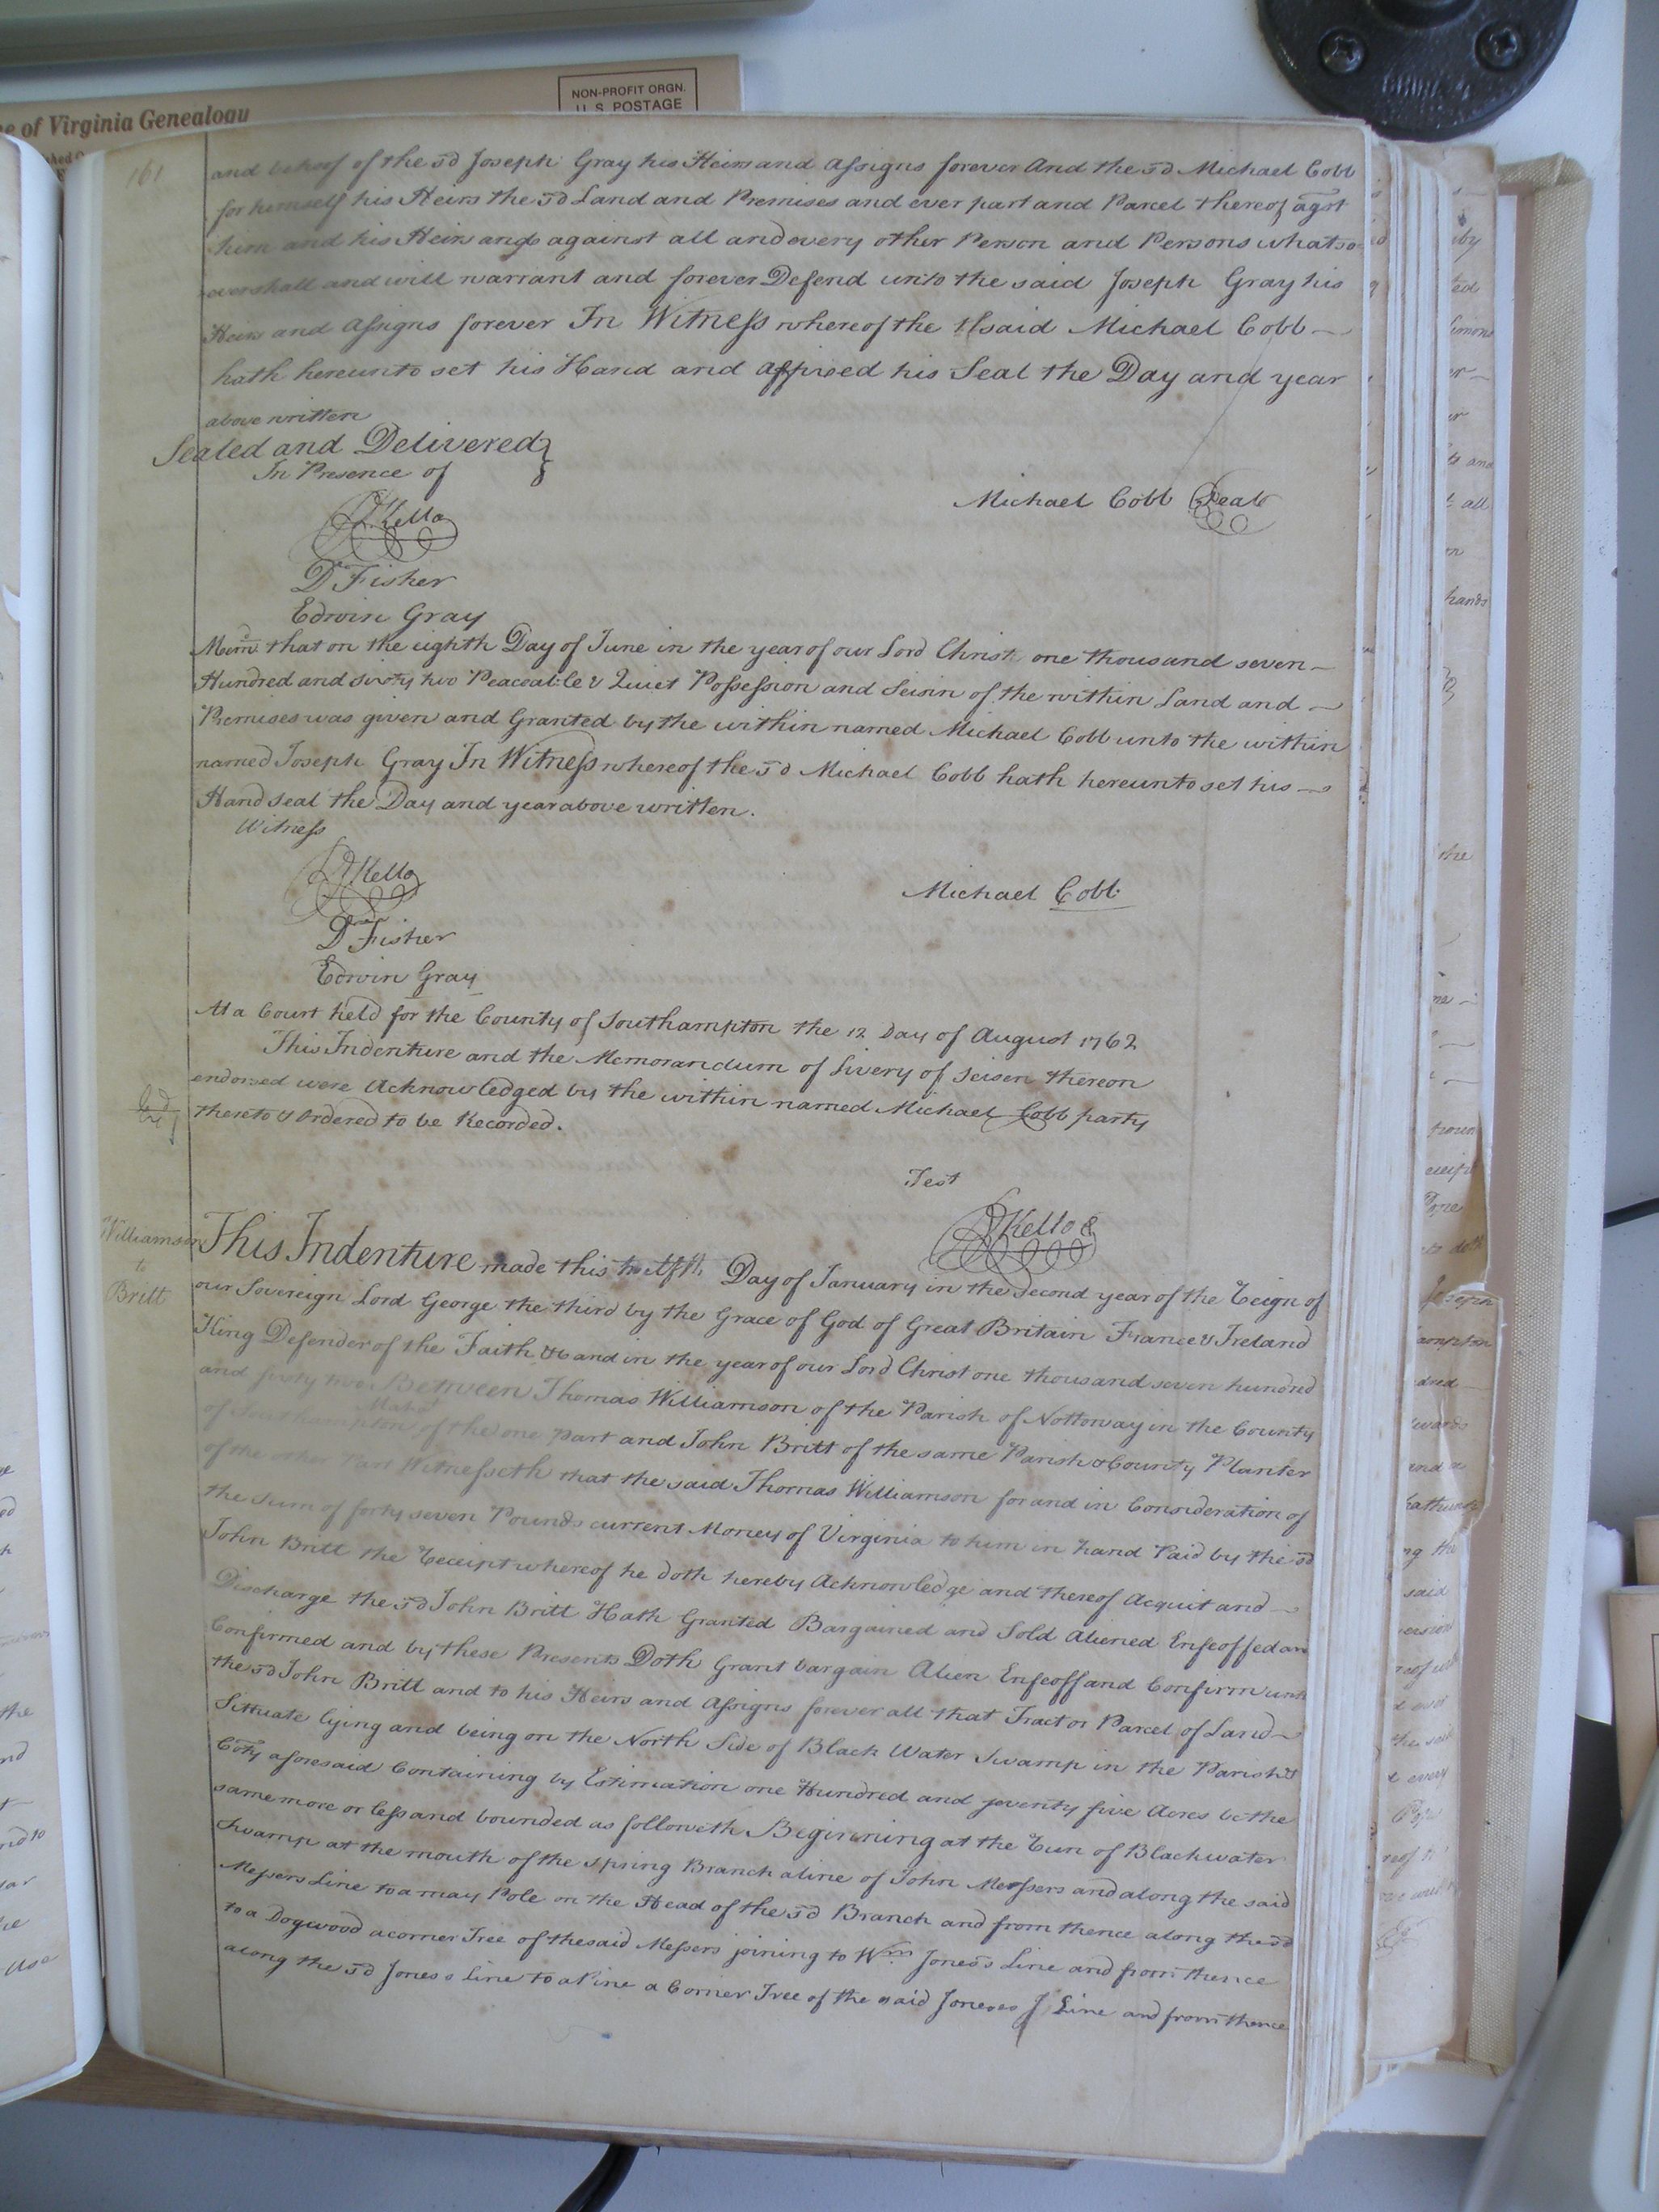 e of Virginia Genealogy
NON-PROFIT ORGN.
U. S. POSTAGE
161
and behoof of the sd Joseph Gray his Heirs and Assigns forever And the sd Michael Cobb
for himself his Heirs the sd Land and Premises and ever part and Parcel thereof agst
him and his Heirs and against all and every other Person and Persons whatso
ever shall and will warrant and forever Defend unto the said Joseph Gray his
Heirs and Assigns forever In Witness whereof the said Michael Cobb
hath hereunto set his Hand and affixed his Seal the Day and year
above written
Sealed and Delivered
In Presence of
Michael Cobb Seal
Kello
D Fisher
Edwin Gray
Memd. that on the eighth Day of June in the year of our Lord Christ one thousand seven
Hundred and sixty two Peaceable & Quiet Possession and Seisin of the within Land and
Premises was given and Granted by the within named Michael Cobb unto the within
named Joseph Gray In Witness whereof the sd Michael Cobb hath hereunto set his
Hand seal the Day and year above written.
Witness
Kello
Michael Cobb
D Fisher
Edwin Gray
At a Court held for the County of Southampton the 12 Day of August 1762
This Indenture and the Memorandum of Livery of Seisen thereon
endorsed were Acknowledged by the within named Michael Cobb party
thereto & Ordered to be Recorded.
Test
Kello
Williamson
to
Britt
This Indenture made this twelfth Day of January in the Second year of the Reign of
our Sovereign Lord George the third by the Grace of God of Great Britain France & Ireland
King Defender of the Faith &c and in the year of our Lord Christ one thousand seven hundred
and sixty two Between Thomas Williamson of the Parish of Nottoway in the County
of Southampton of the one part and John Britt of the same Parish & County Planter
of the other Part Witnesseth that the said Thomas Williamson for and in Consideration of
the Sum of forty seven Pounds current Money of Virginia to him in hand Paid by the sd
John Britt the Receipt whereof he doth hereby Acknowledge and thereof Acquit and
Discharge the sd John Britt Hath Granted Bargained and Sold Aliened Enfeoffed an
Confirmed and by these Presents Doth Grant bargain Alien Enfeoff and Confirm unto
the sd John Britt and to his Heirs and Assigns forever all that Tract or Parcel of Land
Sittuate lying and being on the North Side of Black Water Swamp in the Parish &
Coty aforesaid Containing by Estimation one Hundred and seventy five Acres be the
same more or less and bounded as followeth Beginning at the Run of Blackwater
Swamp at the mouth of the Spring Branch a line of John Messers and along the said
Messers Line to a may Pole on the Head of the sd Branch and from thence along the sd
to a Dogwood a corner Tree of the said Messers joining to Wm. Jones's Line and from thence
along the sd Jones s Line to a Pine a Corner Tree of the said Joneses Line and from thence